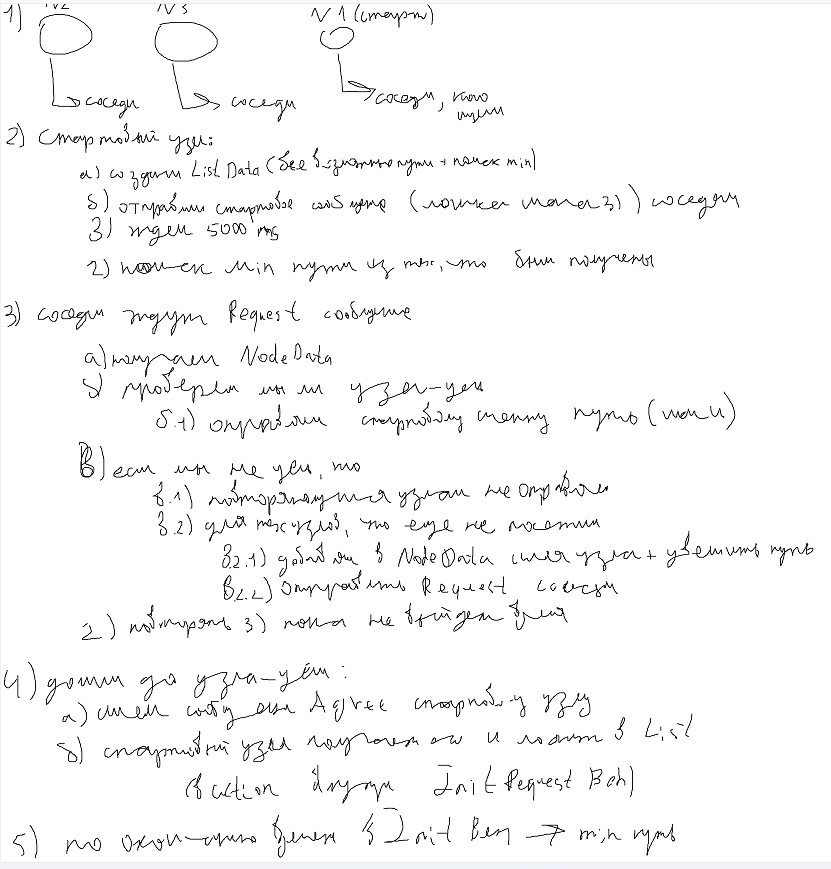 1) N2 N3 N1 (старт)
соседи соседи соседи, кого ищем
2) Стартовый узел:
а) создаем List Data (все возможные пути + поиск min)
б) отправили стартовое сообщение (логика шага 3) соседям
3) ждем 5000 ms
г) поиск min пути из тех, что были получены
3) соседи ждут Request сообщение
а) получаем NodeData
б) проверяем мы ли узел-цель
б.1) отправляем стартовому путь
В) если мы не цель, то
в.1) повторяющимся узлам не отправляем
в.2) для тех узлов, что еще не посетили
в.2.1) добавляем в NodeData имя узла + увеличить путь
в.2.2) Отправить Request соседям
г) повторять 3) пока не выйдет время
4) дошли до узла-цели:
а) шлем сообщение Agree стартовому узлу
б) стартовый узел получает его и ложит в List
(в action внутри InitRequest Beh)
5) по окончанию времени в Init Beh → min путь